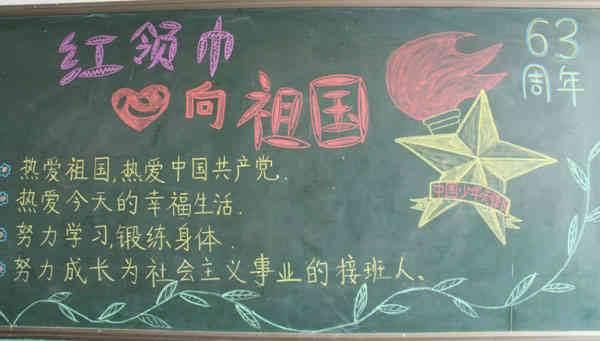 红领巾
心向祖国
63
周年
热爱祖国,热爱中国共产党.
热爱今天的幸福生活.
努力学习,锻练身体.
努力成长为社会主义事业的接班人。
中国少年先锋队